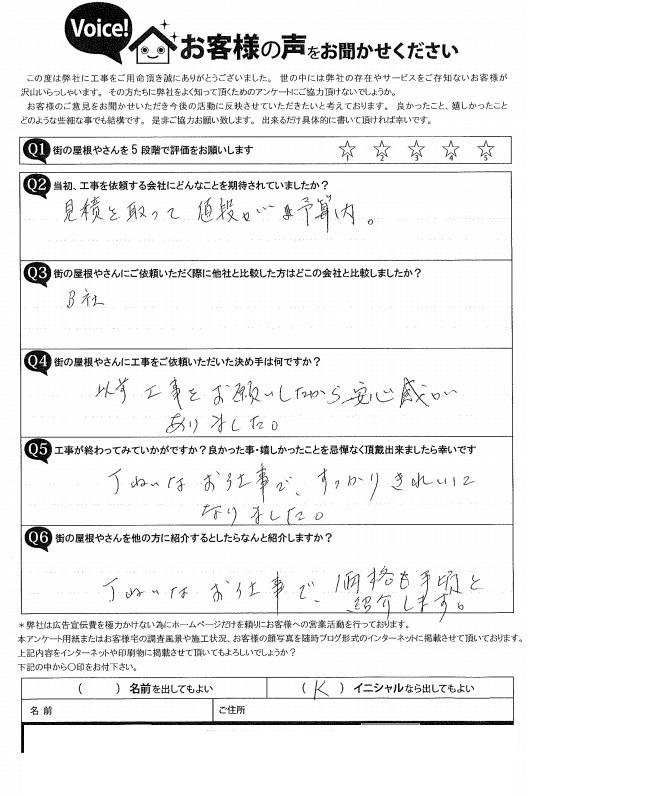 Voice!
お客様の声をお聞かせください
この度は弊社に工事をご用命頂き誠にありがとうございました。 世の中には弊社の存在やサービスをご存知ないお客様が
沢山いらっしゃいます。 その方たちに弊社をよく知って頂くためのアンケートにご協力頂けないでしょうか。
お客様のご意見をお聞かせいただき今後の活動に反映させていただきたいと考えております。 良かったこと、嬉しかったこと
どのような些細な事でも結構です。 是非ご協力お願い致します。 出来るだけ具体的に書いて頂ければ幸いです。
Q1 街の屋根やさんを5段階で評価をお願いします 1 2 3 4 5
Q2 当初、工事を依頼する会社にどんなことを期待されていましたか?
見積を取って 値段が 予算内。
Q3 街の屋根やさんにご依頼いただく際に他社と比較した方はどこの会社と比較しましたか?
B社
Q4 街の屋根やさんに工事をご依頼いただいた決め手は何ですか?
以前 工事をお願いしたから安心感が
ありました。
Q5 工事が終わってみていかがですか?良かった事・嬉しかったことを忌憚なく頂戴出来ましたら幸いです
丁ねいなお仕事で、すっかりきれいに
なりました。
Q6 街の屋根やさんを他の方に紹介するとしたらなんと紹介しますか?
丁ねいなお仕事で、価格も手頃と
紹介します。
*弊社は広告宣伝費を極力かけない為にホームページだけを頼りにお客様への営業活動を行っております。
本アンケート用紙またはお客様宅の調査風景や施工状況、お客様の顔写真を随時ブログ形式のインターネットに掲載させて頂いております。
上記内容をインターネットや印刷物に掲載させて頂いてもよろしいでしょうか?
下記の中から〇印をお付下さい。
( ) 名前を出してもよい (K) イニシャルなら出してもよい
名 前 ご住所